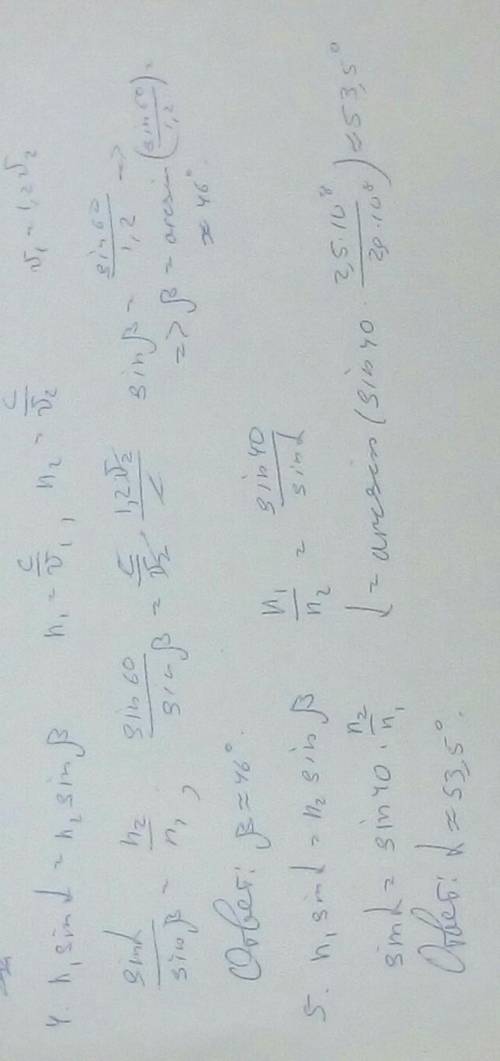 4. n₁ sinα = n₂ sinβ   n₁ = c/v₁, n₂ = c/v₂   v₁ = 1,2v₂
sinα/sinβ = n₂/n₁; sin60/sinβ = c/v₂ · 1,2v₂/c   sinβ = sin60/1,2 =>
=> β = arcsin(sin60/1,2) ≈
≈ 46°.
Ответ: β ≈ 46°.
5. n₁ sinα = n₂ sinβ   n₁/n₂ = sin40/sinα
sinα = sin40 · n₂/n₁   α = arcsin(sin40 · 2,5·10⁸/2,0·10⁸) ≈ 53,5°
Ответ: α ≈ 53,5°.